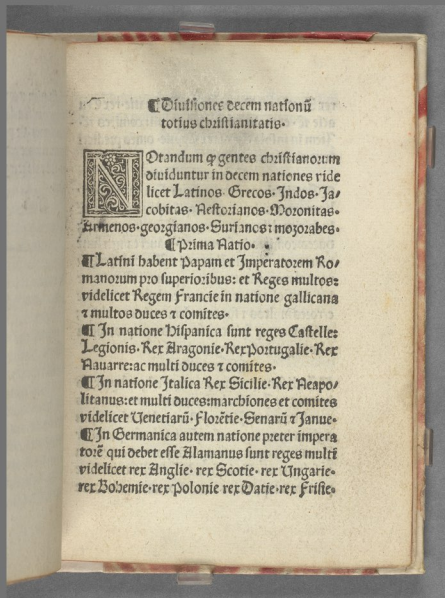 ¶Diuisiones decem nationū
totius christianitatis.
NOtandum ꝙ gentes christianorum
diuiduntur in decem nationes vide
licet Latinos Grecos. Indos. Ja-
cobitas. Nestorianos. Moronitas.
Armenos. georgianos. Surianos ⁊ mozorabes.
¶Prima Natio.
¶Latini habent Papam et Imperatorem Ro-
manorum pro superioribus: et Reges multos:
videlicet Regem Francie in natione gallicana
⁊ multos duces ⁊ comites.
¶In natione hispanica sunt reges Castelle:
Legionis. Rex Aragonie. Rex Portugalie. Rex
Nauarre: ac multi duces ⁊ comites.
¶In natione Italica Rex Sicilie. Rex Neapo-
litanus: et multi duces: marchiones et comites
videlicet Uenetiarū. Florētie. Senarū ⁊ Janue.
¶In Germanica autem natione preter impera
torē qui debet esse Alamanus sunt reges multi
videlicet rex Anglie. rex Scotie. rex Ungarie.
rex Bohemie. rex Polonie rex Datie. rex Frisie.